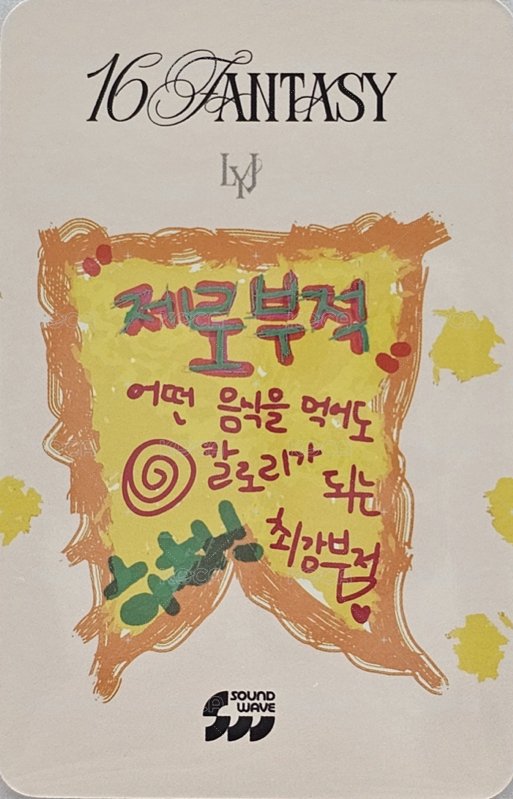 16 FANTASY
LYJ
제로부적
어떤 음식을 먹어도
칼로리가
되는
최강부적
SOUND
WAVE